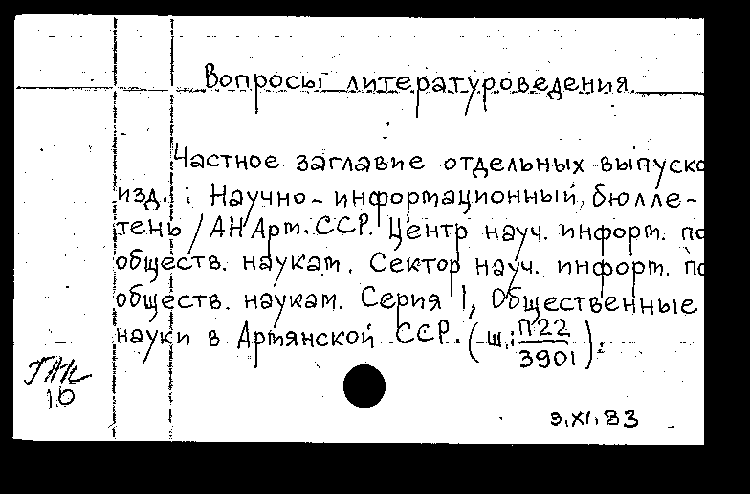 Вопросы литературоведения
Частное заглавие отдельных выпуско
изд.: Научно-информационный бюлле-
тень / АН Арм. ССР. Центр науч. информ. по
обществ. наукам. Сектор науч. информ. по
обществ. наукам. Серия 1, Общественные
науки в Армянской ССР. (ш.: П22
3901).
10
9.XI.83